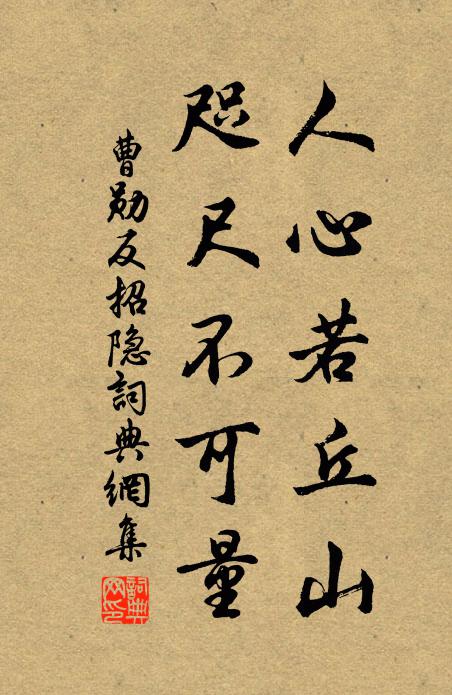 人心若丘山
咫尺不可量
曹勋反招隐詞典網集
詞典网印